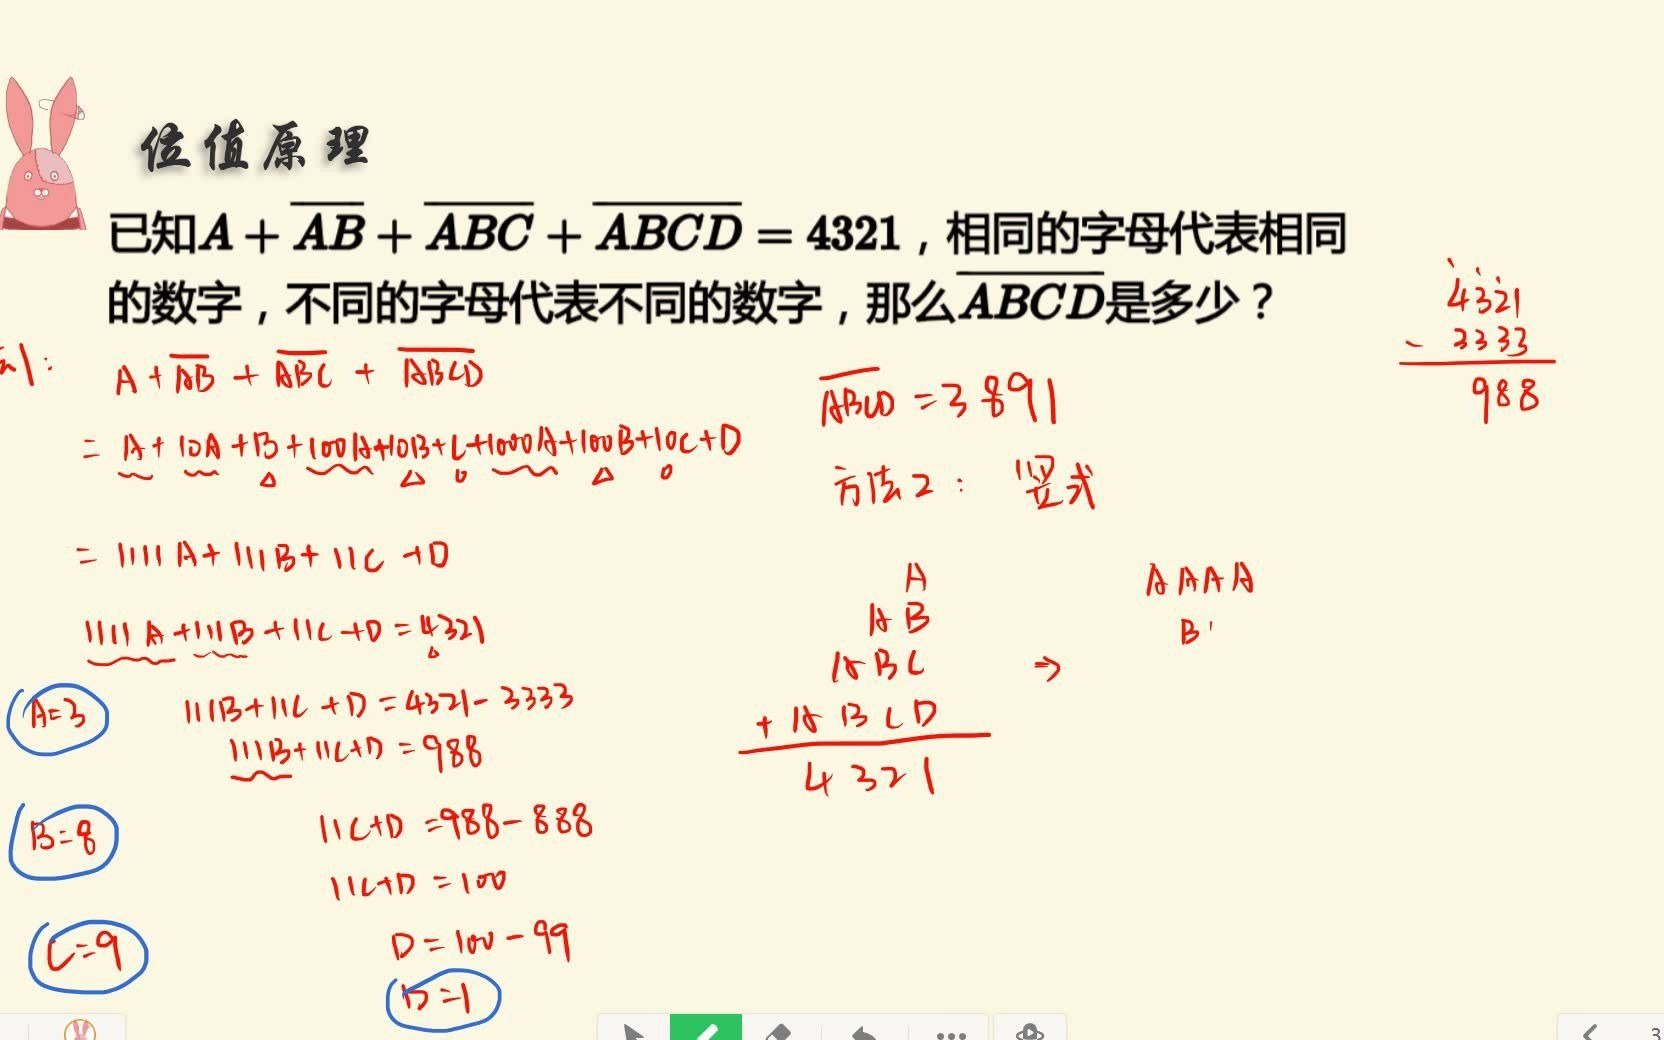 位值原理
已知A + AB + ABC + ABCD = 4321，相同的字母代表相同
的数字，不同的字母代表不同的数字，那么ABCD是多少？
1:
A + AB + ABC + ABCD
= A + 10A + B + 100A + 10B + C + 1000A + 100B + 10C + D
= 1111A + 111B + 11C + D
1111A + 111B + 11C + D = 4321
A=3
111B + 11C + D = 4321 - 3333
111B + 11C + D = 988
B=8
11C+D = 988 - 888
11C+D = 100
C=9
D = 100 - 99
D = 1
ABCD = 3891
方法2： 竖式
A
AB
ABC
+ ABCD
4321
⇒
AAAA
B
4321
- 3333
988
3